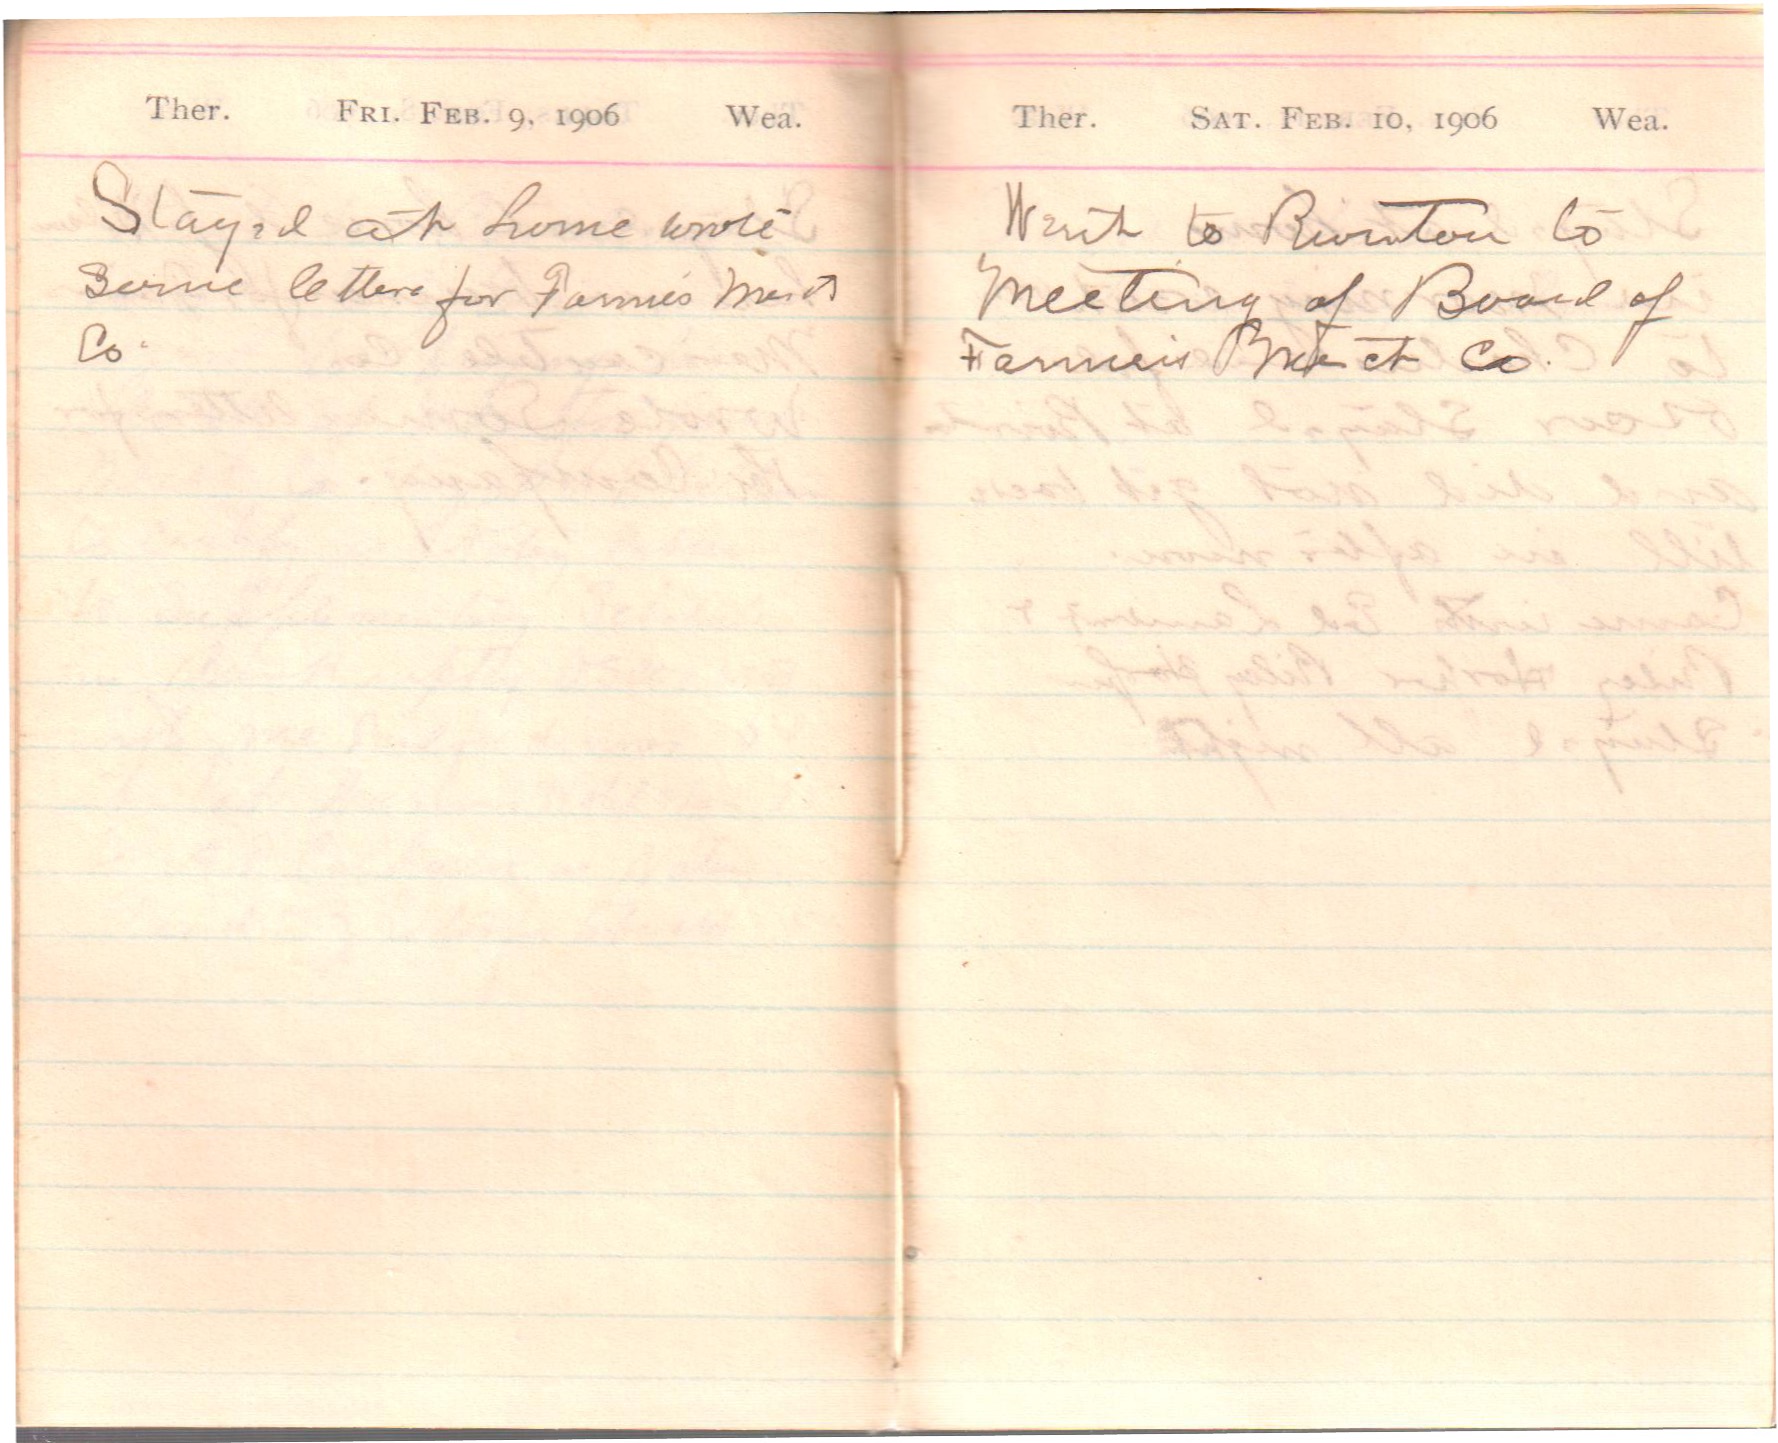 Ther. FRI. FEB. 9, 1906 Wea.
Stayed at home wrote
Some letters for Farmers
Co.
Ther. SAT. FEB. 10, 1906 Wea.
Went to to
Meeting of Board of
Farmers Co.